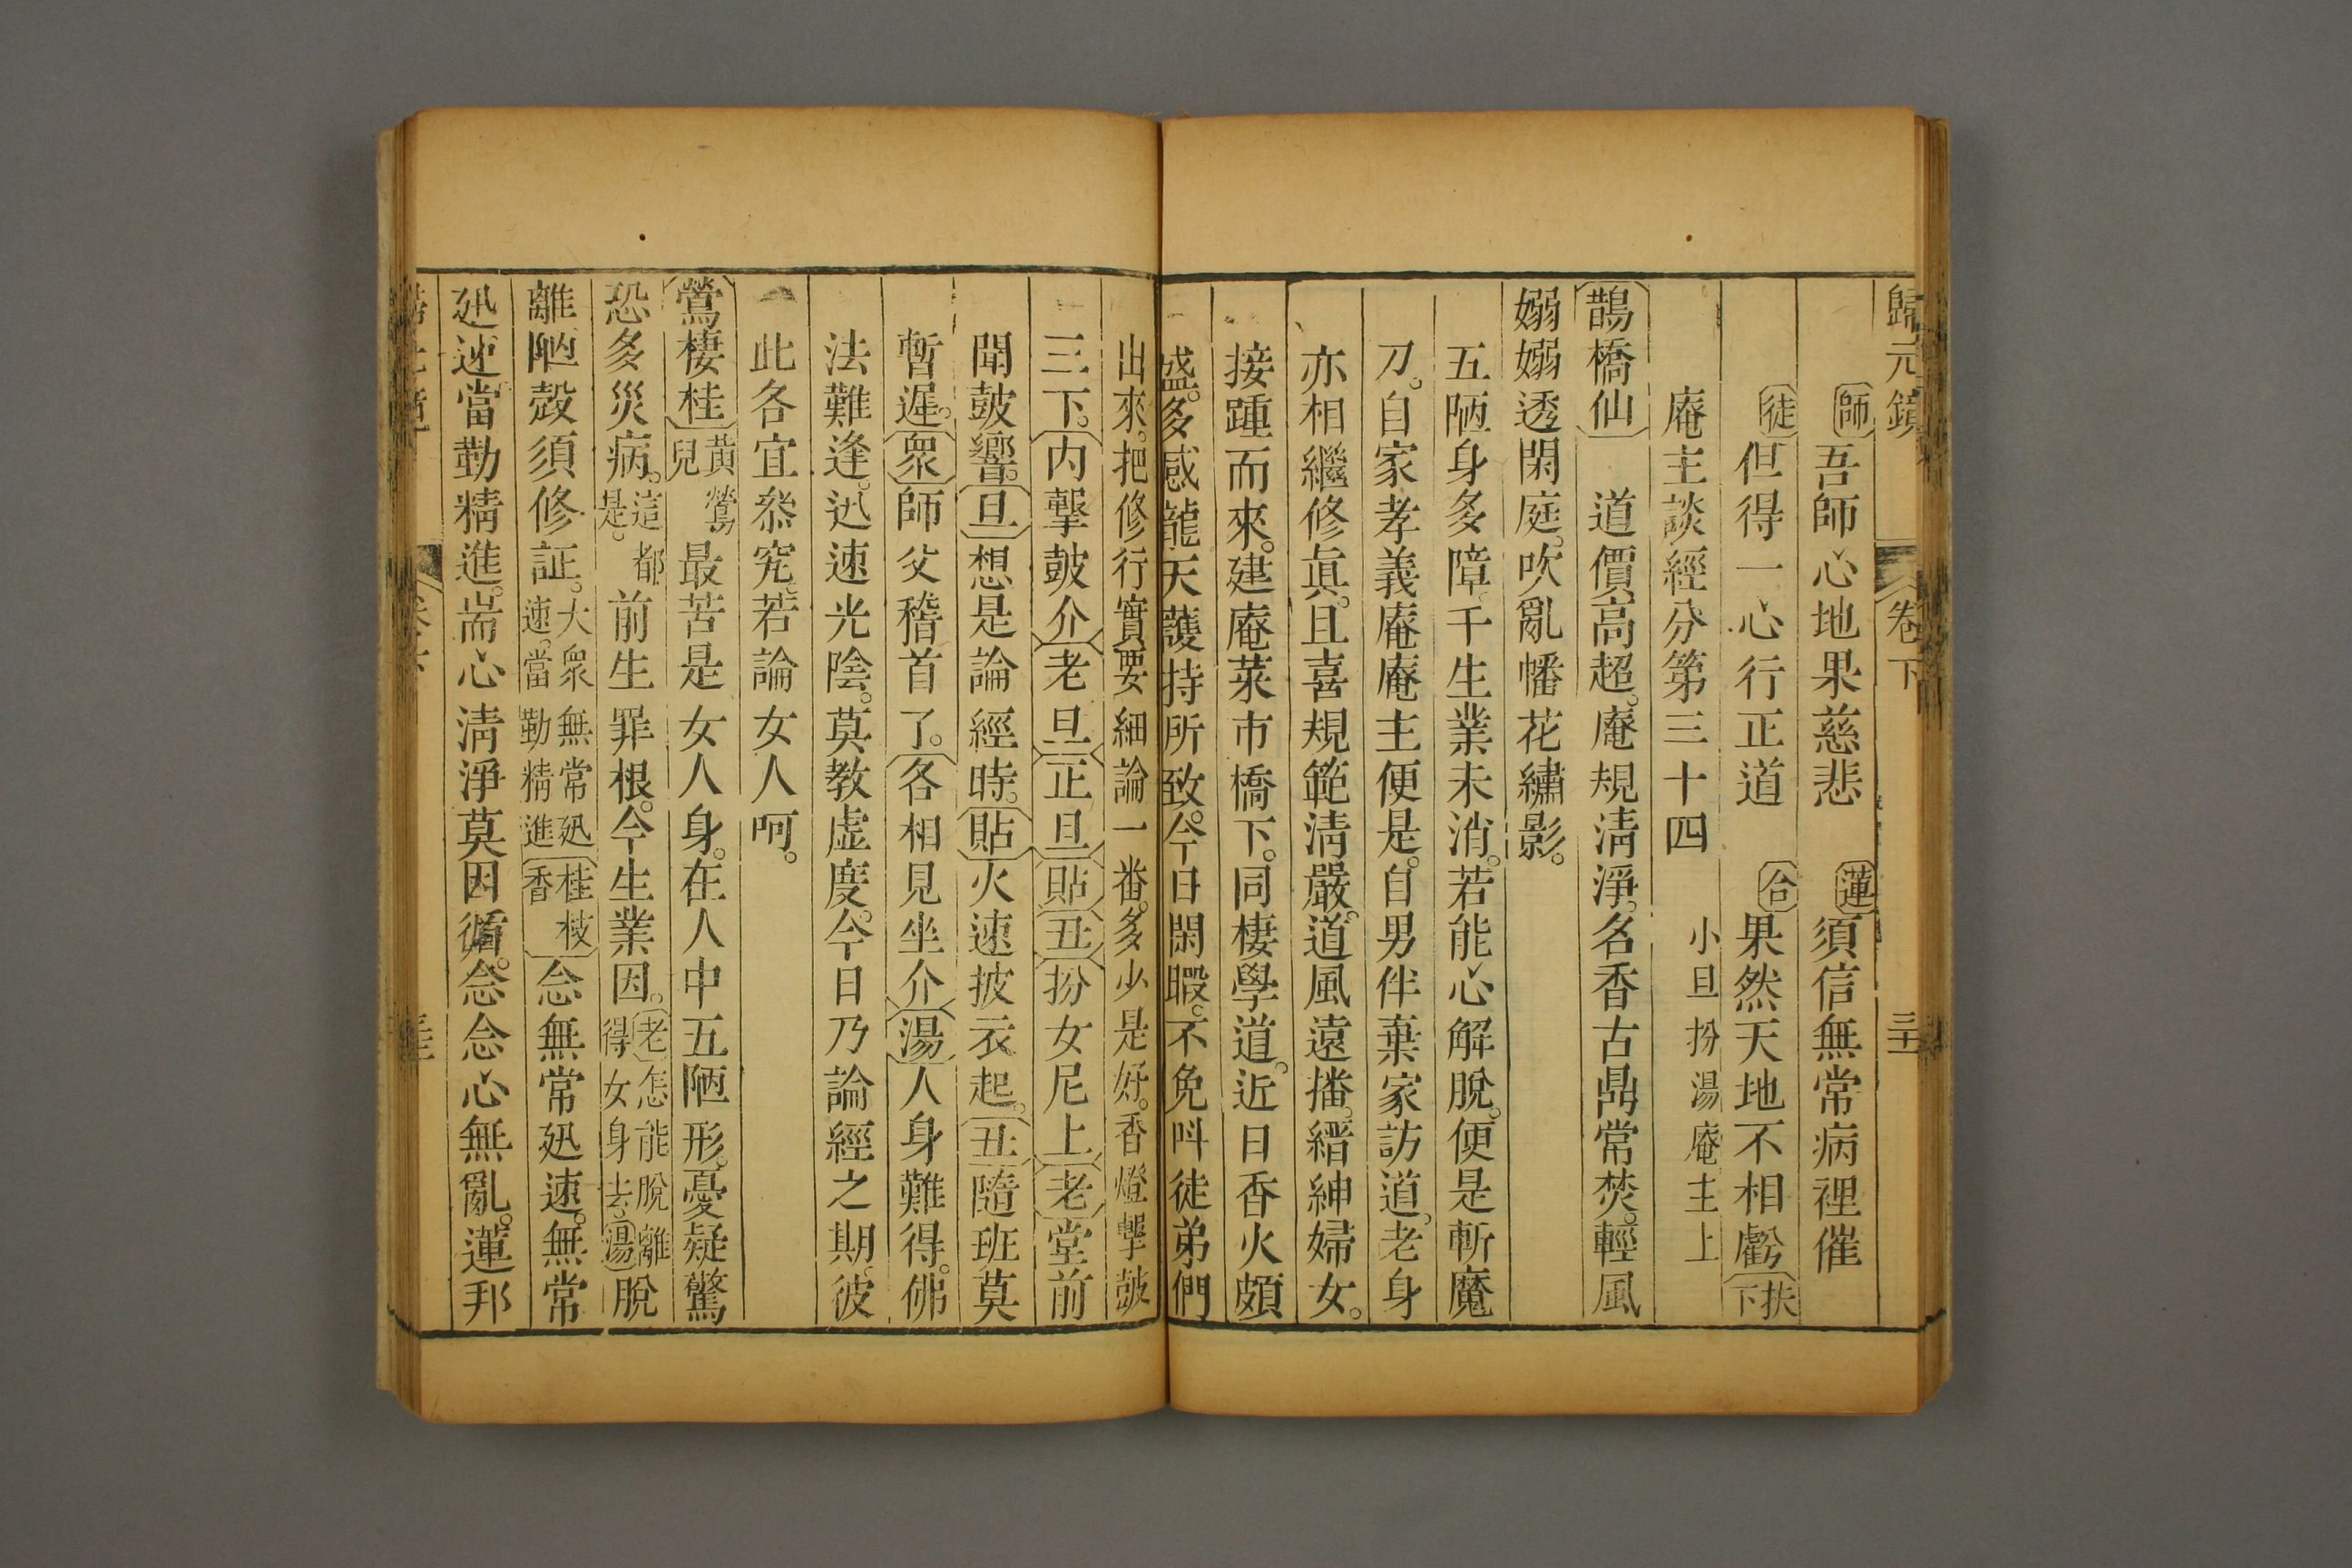 歸元鏡 卷下 三十二
師 吾師心地果慈悲 蓮 須信無常病裡催
徒 但得一心行正道 合 果然天地不相虧 扶下
庵主談經分第三十四 小旦扮湯庵主上
鵲橋仙 道價高超。庵規清淨。名香古鼎常焚。輕風
嫋嫋透閑庭。吹亂幡花繡影。
五陋身多障。千生業未消。若能心解脫。便是斬魔
刀。自家孝義庵庵主便是。自男伴棄家訪道。老身
亦相繼修眞。且喜規範清嚴。道風遠播。縉紳婦女。
接踵而來。建庵菜市橋下。同棲學道。近日香火頗
盛。多感龍天護持所致。今日閑暇。不免呌徒弟們
出來。把修行實要細論一番。多少是好。香燈擊鼓
三下。內擊鼓介 老旦 正旦 貼 丑 扮女尼上 老 堂前
聞鼓響。旦 想是論經時。貼 火速披衣起。丑 隨班莫
暫遲。衆 師父稽首了。各相見坐介 湯 人身難得。佛
法難逢。迅速光陰。莫教虛度。今日乃論經之期。彼
此各宜叅究。若論女人呵。
鶯棲桂 黃鶯兒 最苦是女人身。在人中五陋形。憂疑驚
恐多災病。這都是。前生罪根。今生業因。老 怎能脫離得女身去。湯 脫
離陋殼須修証。大衆無常迅速。當勤精進 桂枝香 念無常迅速。無常
迅速。當勤精進。耑心清淨莫因循。念念心無亂。蓮邦